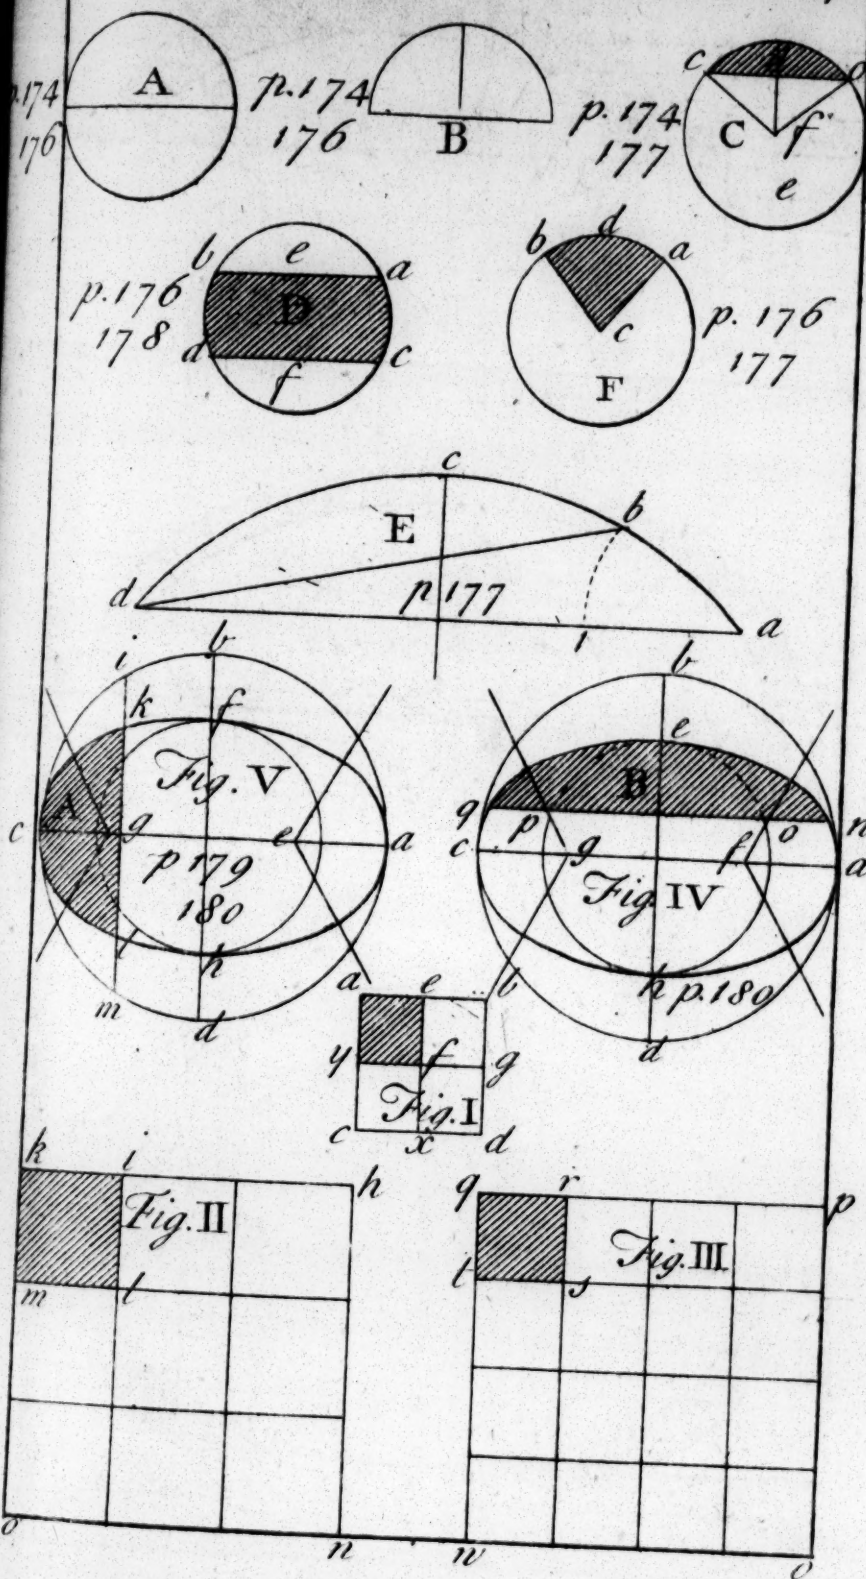 p.174
176
A
p.174
176
B
p.174
177
c
C
f
e
p.176
178
b
e
a
D
d
f
c
b
d
a
c
F
p. 176
177
c
E
b
d
p 177
1
a
i
b
k
f
Fig. V
A
c
g
e
a
p 179
180
l
h
m
d
b
e
B
q
p
o
n
c
g
f
a
Fig. IV
h
p.180
d
a
e
b
y
f
g
Fig. I
c
x
d
k
i
h
Fig. II
m
l
o
n
q
r
p
Fig. III
t
s
w
o